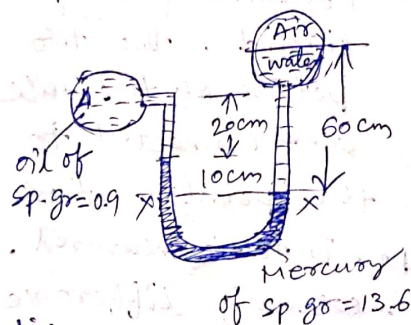 Air
water
A
20cm
60cm
10cm
oil of
sp.gr=0.9
X
X
Mercury
of sp.gr=13.6